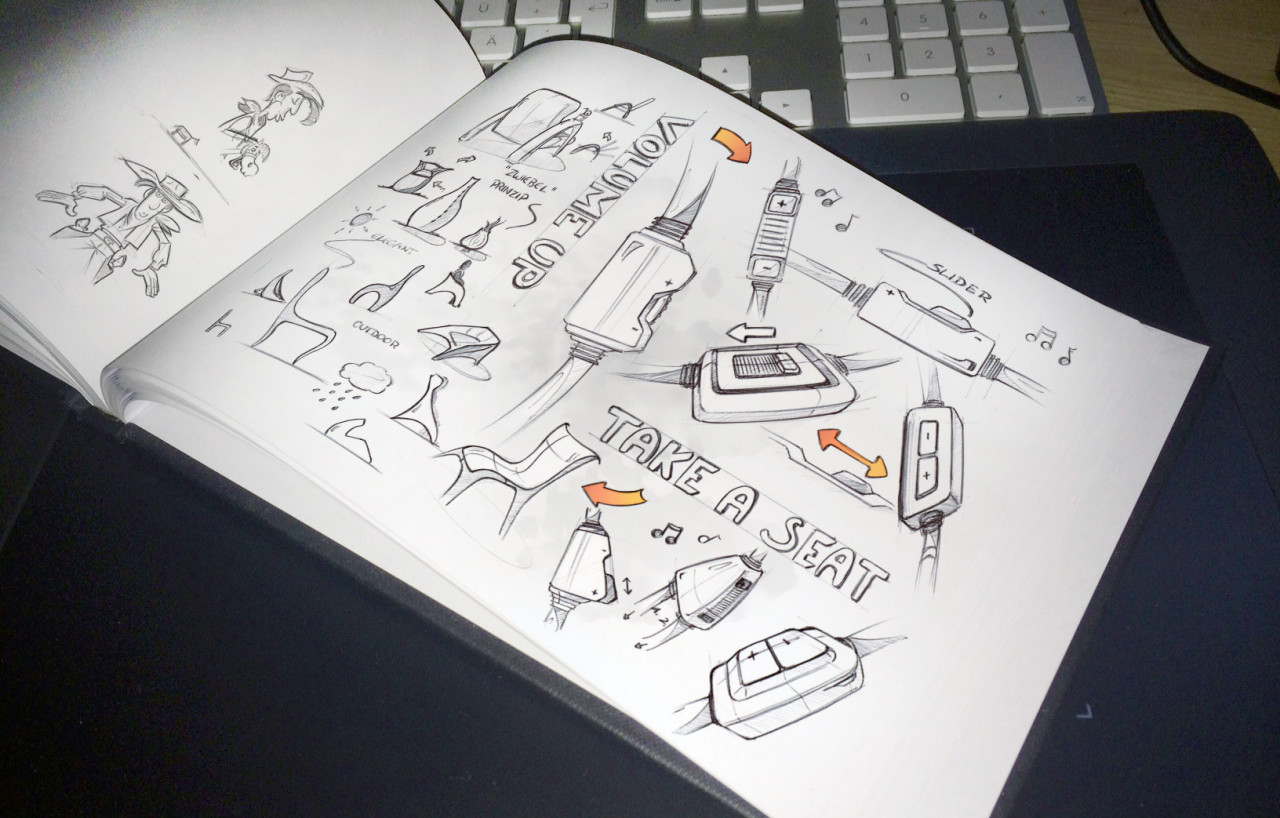 VOLUME UP
"ZWIEBEL"
PRINZIP
ELEGANT
OUTDOOR
SLIDER
TAKE A SEAT
1. 2.
+
-
+
-
+
-
-
+
+
+
-
Ü
+
Ä
4
5
6
+
1
2
3
0
,